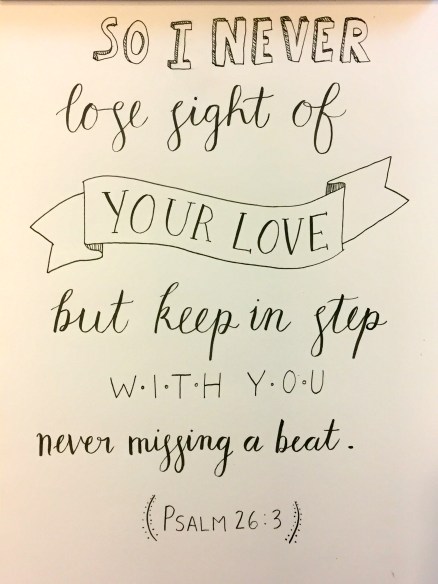 SO I NEVER
lose sight of
YOUR LOVE
but keep in step
W·I·T·H Y·O·U
never missing a beat.
(PSALM 26:3)